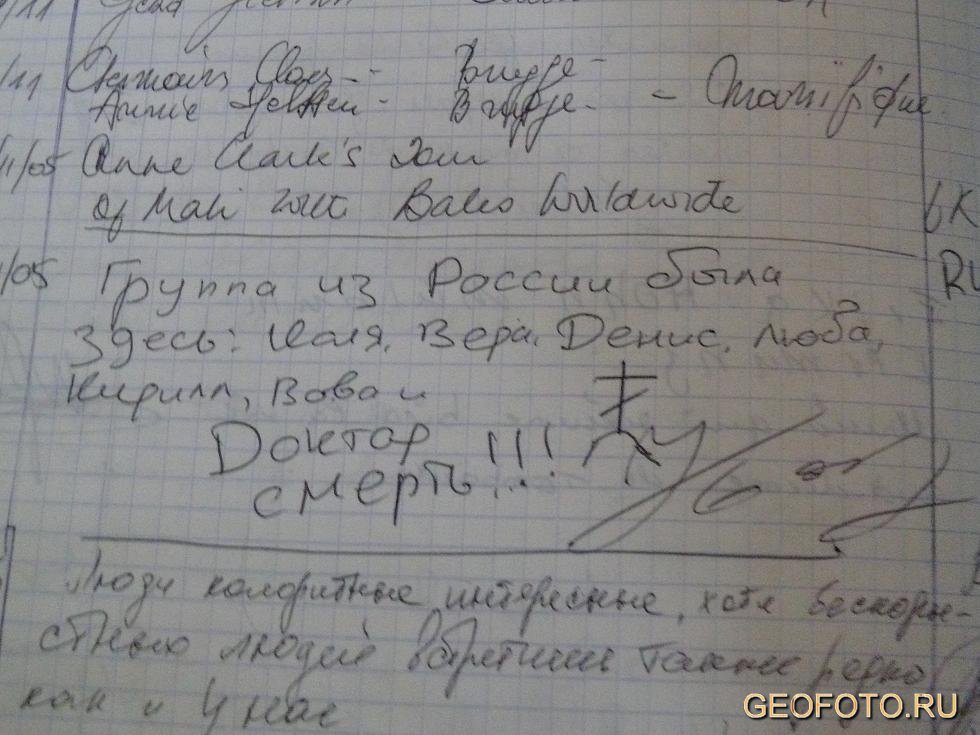 /11 Germain Claes - - Brugge -
Annie - Brugge - - Magnifique
11/05 Anne Clark's Tour
of Mali with Bales Worldwide
/05 Группа из России была RU
Здесь: Коля, Вера, Денис, Люба,
Кирилл, Вова и
Доктор
смерть!!!
Люди колоритные интересные, хотя бескоры-
стных людей встретишь также редко
как и у нас
GEOFOTO.RU